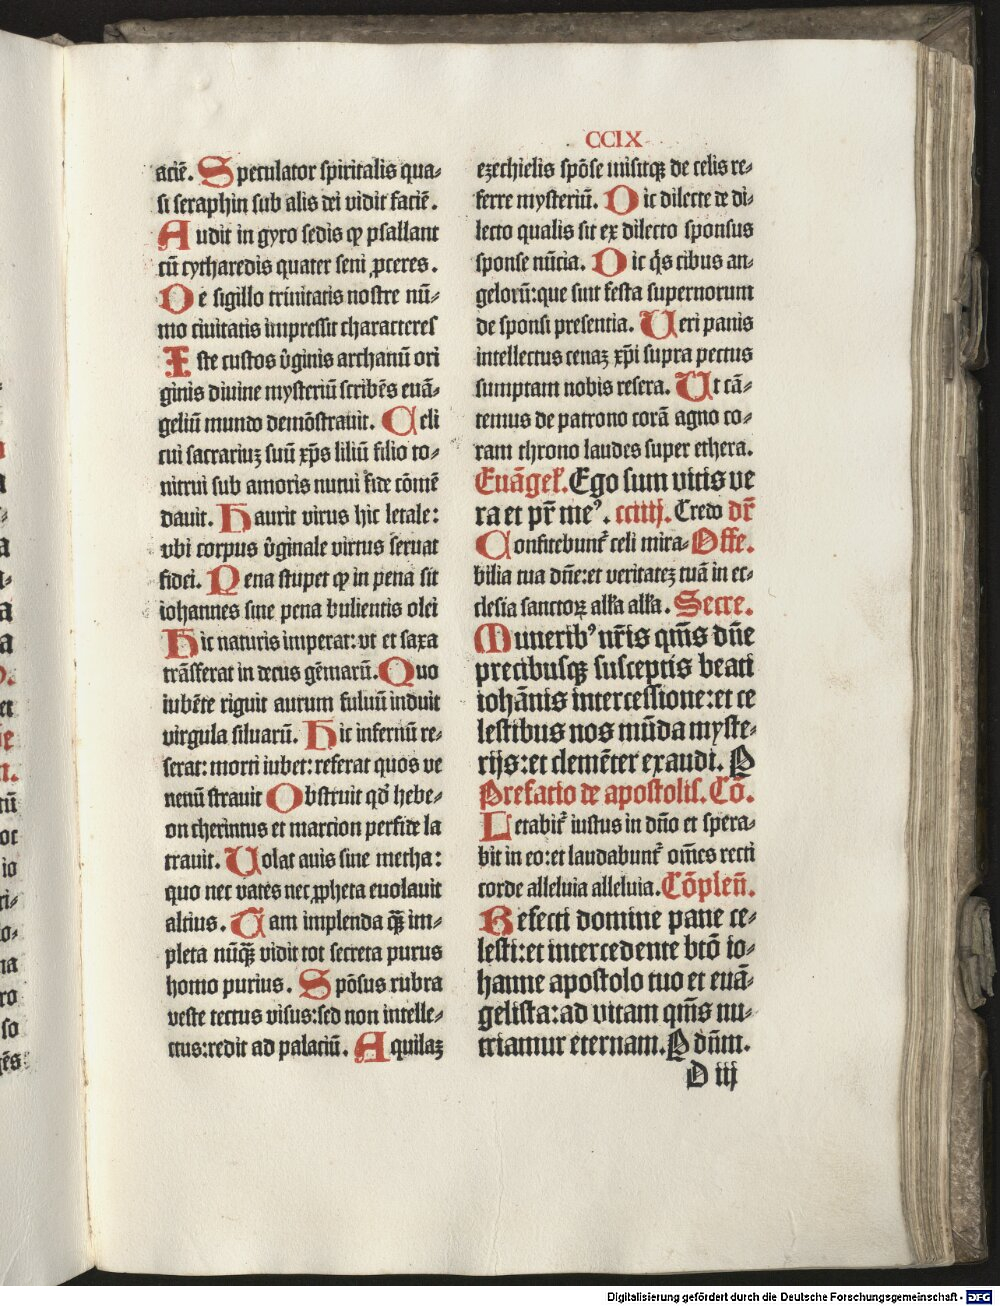 CCIX
aciē. Speculator spiritalis qua⸗
si seraphin sub alis dei vidit faciē.
Audit in gyro sedis qꝫ psallant
cū cytharedis quater seni ꝓceres.
De sigillo trinitatis nostre nū⸗
mo ciuitatis impressit characteres
Iste custos v̄ginis archanū ori
ginis diuine mysteriū scribēs euā⸗
geliū mundo demōstrauit. Celi
cui sacrariuꝫ suū xp̄s liliū filio to⸗
nitrui sub amoris nutui fide cōmē
dauit. Haurit virus hic letale:
vbi corpus v̄ginale virtus seruat
fidei. Pena stupet qꝫ in pena sit
iohannes sine pena bulientis olei
Hic naturis imperat: vt et saxa
trāsferat in decus gēmarū. Quo
iubēte riguit aurum fuluū induit
virgula siluarū. Hic infernū re⸗
serat: morti iubet: referat quos ve
nenū strauit Obstruit qđ hebe⸗
on cherintus et marcion perfide la
trauit. Volat auis sine metha:
quo nec vates nec ꝓpheta euolauit
altius. Tam implenda qꝫ̄ im⸗
pleta nūqꝫ̄ vidit tot secreta purus
homo purius. Spōsus rubra
veste tectus visus: sed non intelle⸗
ctus: redit ad palaciū. Aquilaꝫ
ezechielis spōse misitqꝫ de celis re⸗
ferre mysteriū. Dic dilecte de di⸗
lecto qualis sit ex dilecto sponsus
sponse nūcia. Dic q̄s cibus an⸗
gelorū: que sint festa supernorum
de sponsi presentia. Veri panis
intellectus cenaꝫ xp̄i supra pectus
sumptam nobis resera. Ut cā⸗
temus de patrono corā agno co⸗
ram throno laudes super ethera.
Euāgel̄. Ego sum vitis ve
ra et pr̄ me⁹. cciiij. Credo dr̄
Confitebunt᷑ celi mira⸗ Offe.
bilia tua dn̄e: et veritateꝫ tuā in ec⸗
clesia sanctoꝝ all̄a all̄a. Secre.
Munerib⁹ nr̄is qm̄s dn̄e
precibusqꝫ susceptis beati
iohānis intercessione: et ce
lestibus nos mūda myste⸗
rijs: et clemēter exaudi. P
Prefacio de apostolis. Cō.
Letabit᷑ iustus in dn̄o et spera⸗
bit in eo: et laudabunt᷑ om̄es recti
corde alleluia alleluia. Cōpleñ.
Refecti domine pane ce⸗
lesti: et intercedente btō io⸗
hanne apostolo tuo et euā⸗
gelista: ad vitam qm̄s nu⸗
triamur eternam. P dn̄m.
D iij
Digitalisierung gefördert durch die Deutsche Forschungsgemeinschaft - DFG